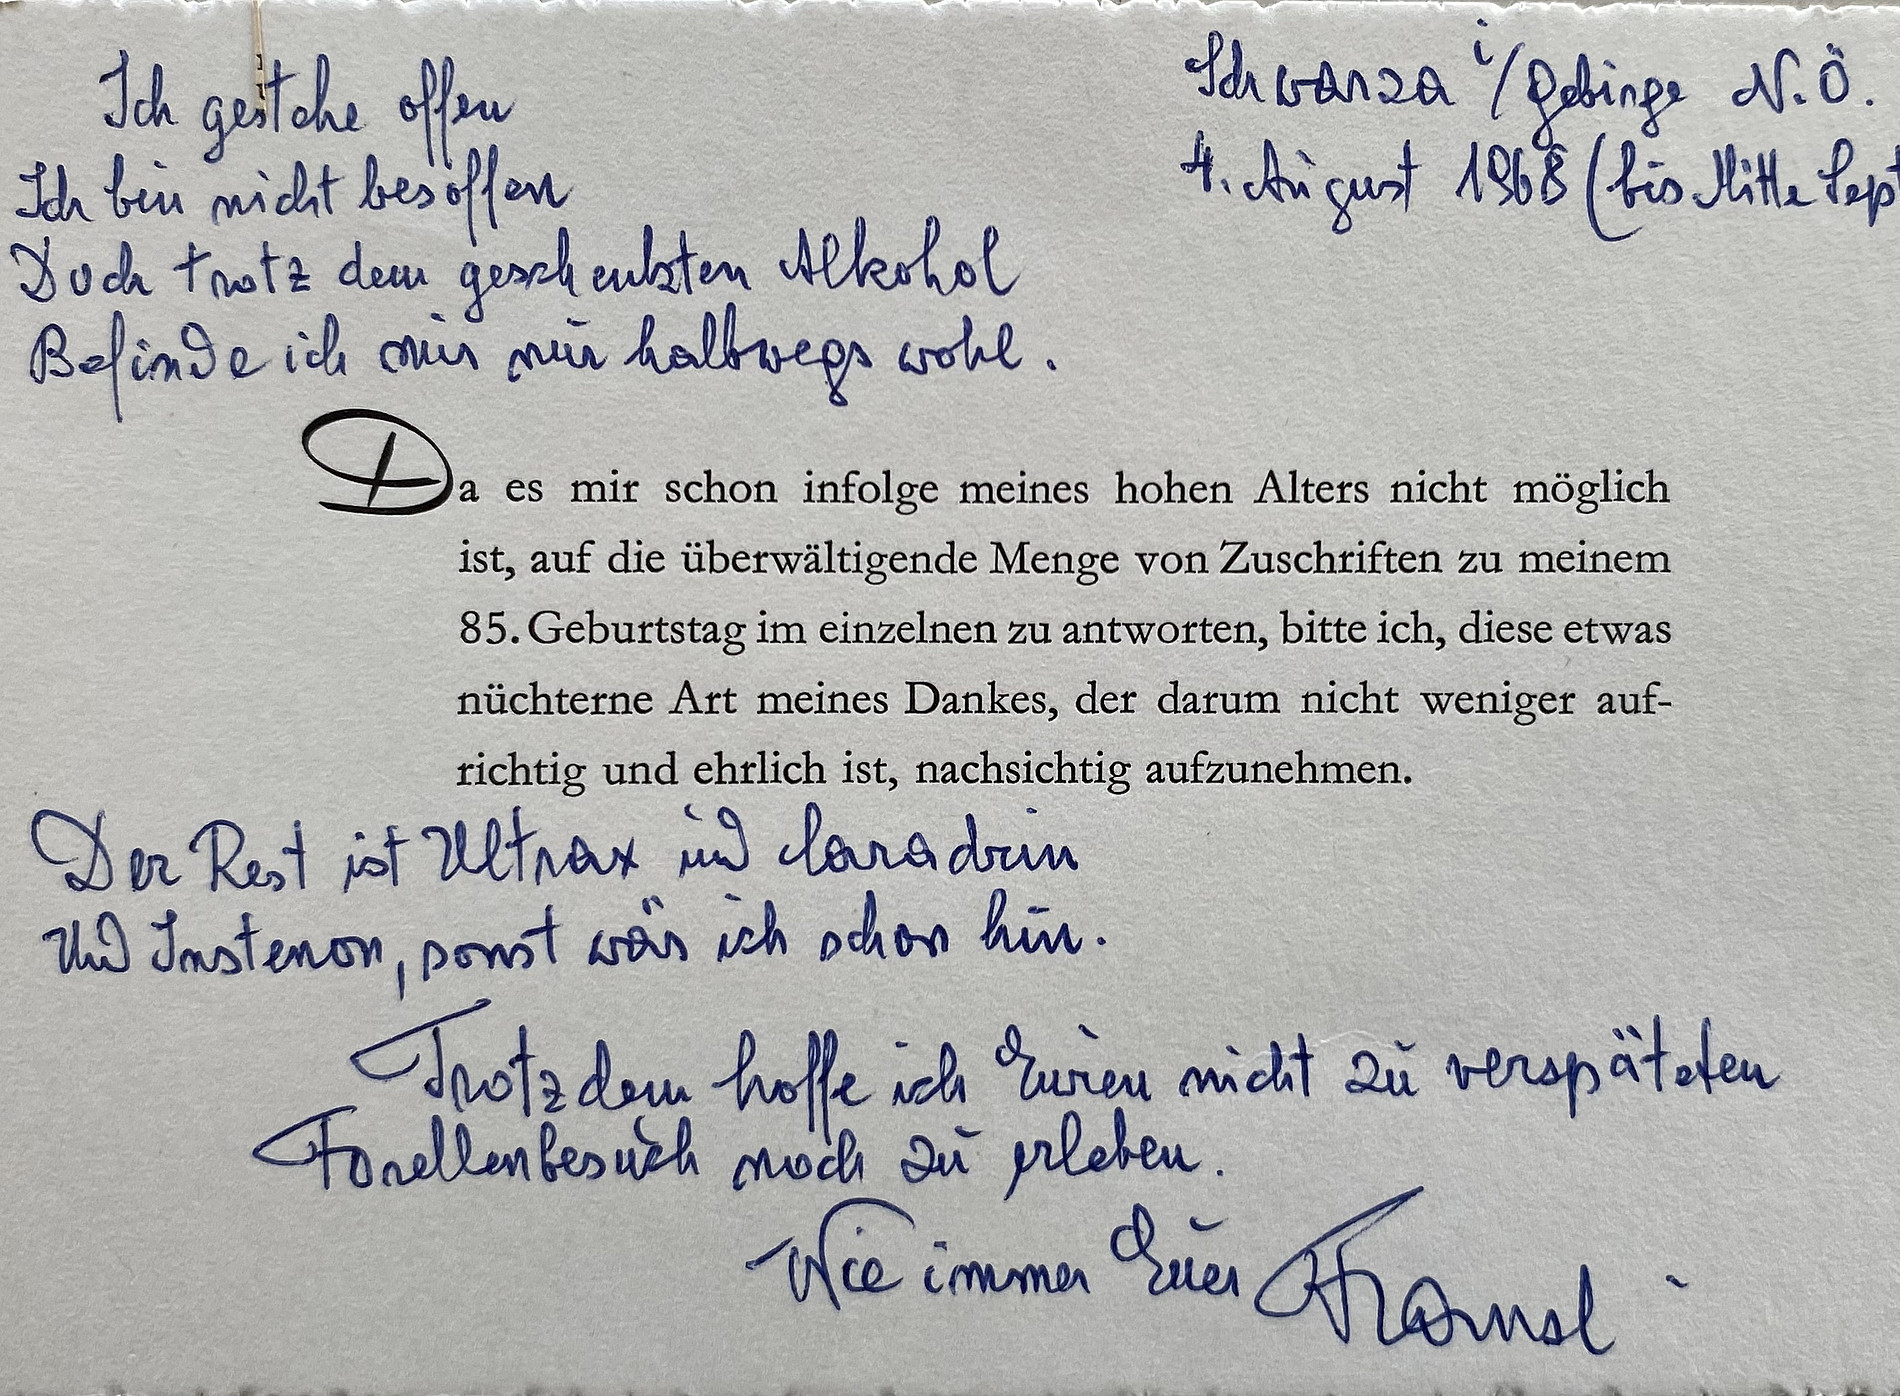 Ich gestehe offen
Ich bin nicht besoffen
Doch trotz dem geschenkten Alkohol
Befinde ich mir nur halbwegs wohl.
Schwarza i/Gebirge N.Ö.
4. August 1968 (bis Mitte Sept
Da es mir schon infolge meines hohen Alters nicht möglich
ist, auf die überwältigende Menge von Zuschriften zu meinem
85. Geburtstag im einzelnen zu antworten, bitte ich, diese etwas
nüchterne Art meines Dankes, der darum nicht weniger auf-
richtig und ehrlich ist, nachsichtig aufzunehmen.
Der Rest ist und
Und Instenon, sonst wär ich schon hin.
Trotzdem hoffe ich Euren nicht zu verspäteten
Forellenbesuch noch zu erleben.
Wie immer Euer